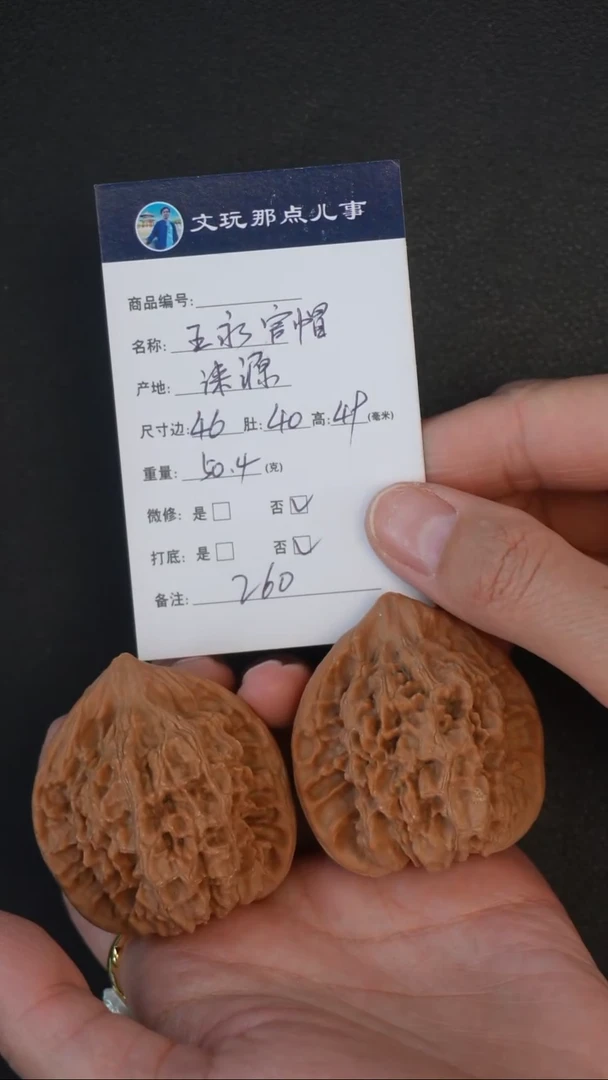 文玩那点儿事
商品编号:
名称: 王永官帽
产地: 涞源
尺寸边:46 肚:40 高:49(毫米)
重量: 50.4(克)
微修: 是□ 否☑
打底: 是□ 否☑
备注: 260